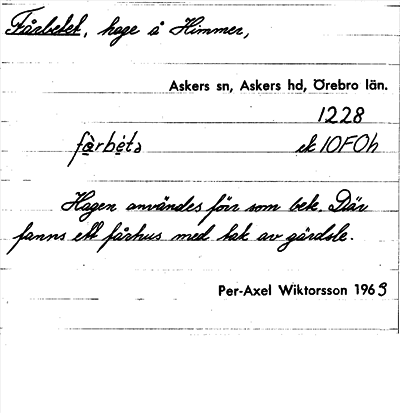 Fårbetet, hage å Himmer,
Askers sn, Askers hd, Örebro län.
1228
fàrbéta ek 10F0h
Hagen användes förr som bete. Där
fanns ett fårhus med tak av gärdsle.
Per-Axel Wiktorsson 1963